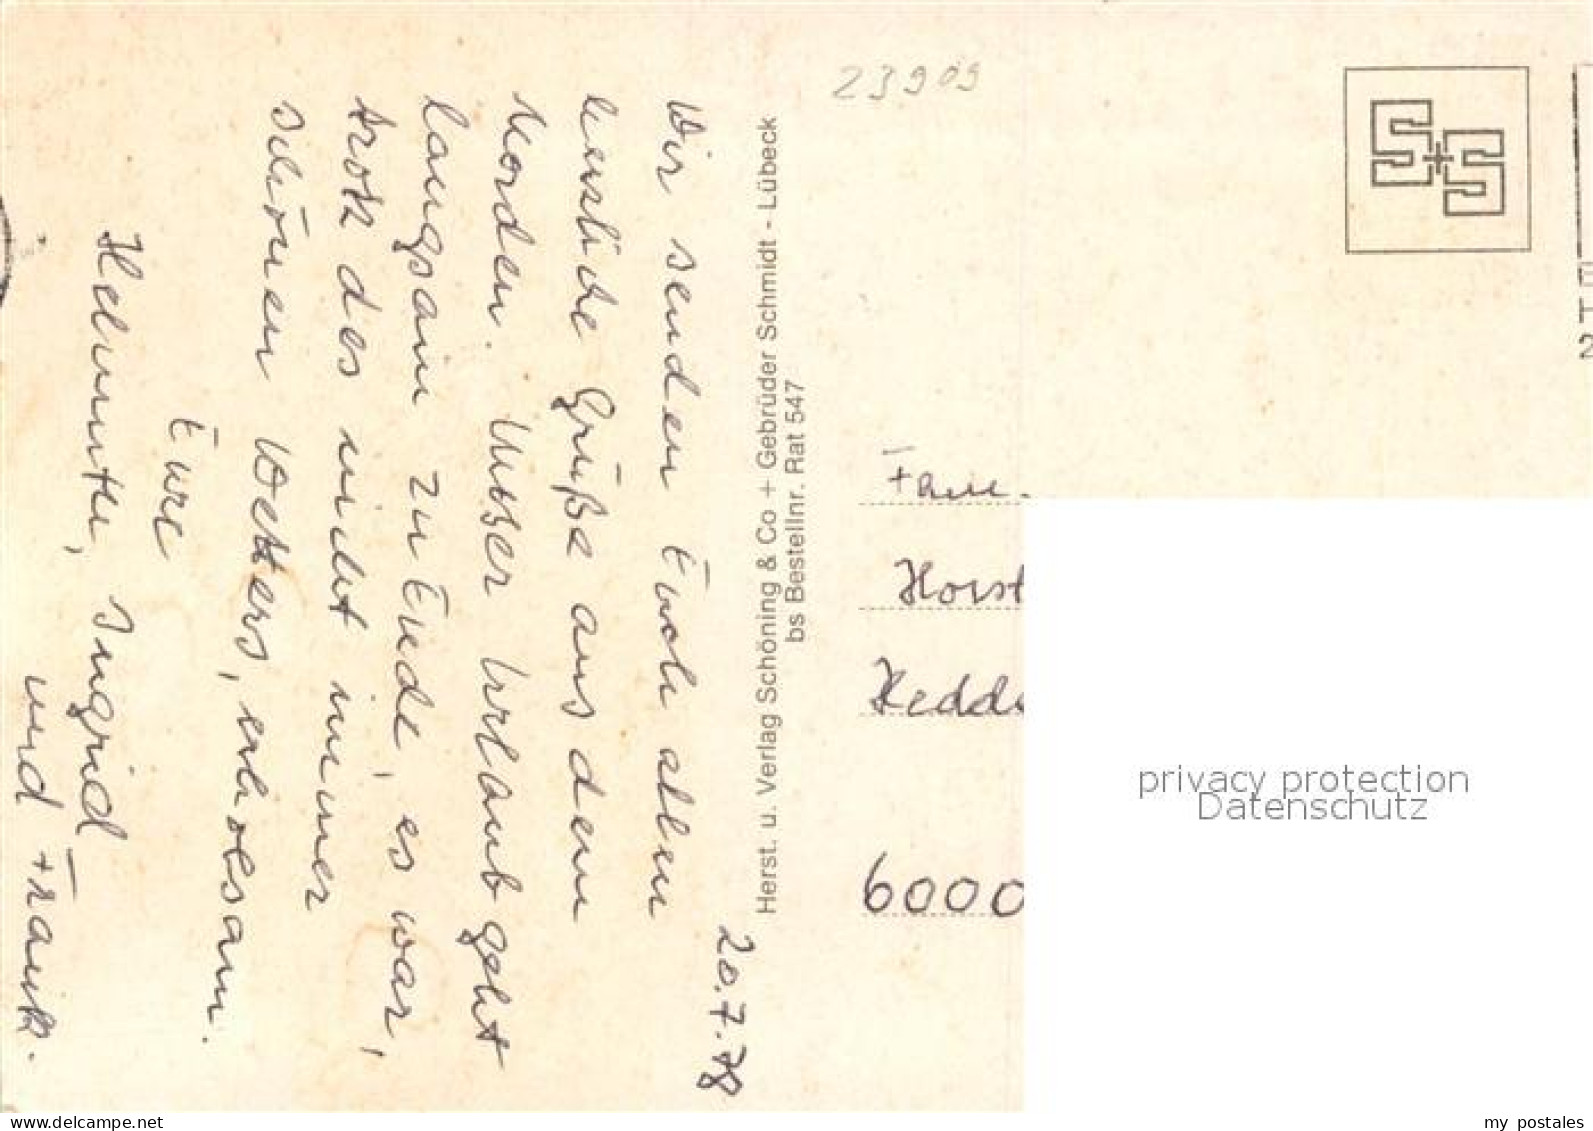 20.7.78
Wir senden Euch allen
herzliche Grüße aus dem
Norden. Unser Urlaub geht
langsam zu Ende, es war,
trotz des nicht immer
schönen Wetters, erholsam.
Eure
Hellmuth, Ingrid
und Frank.
Herst. u. Verlag Schöning & Co + Gebrüder Schmidt - Lübeck
bs Bestellnr. Rat 547
23909
S+S
Fam.
Horst
Hedd
6000
privacy protection
Datenschutz
akpool.co.uk
my postales